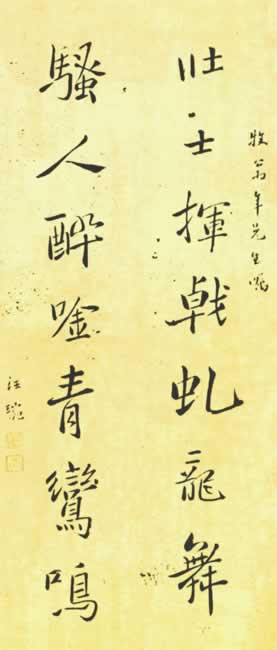 牧翁年先生嘱
壮士揮戟虬龍舞
騷人醉唫青鸞鳴
汪琬